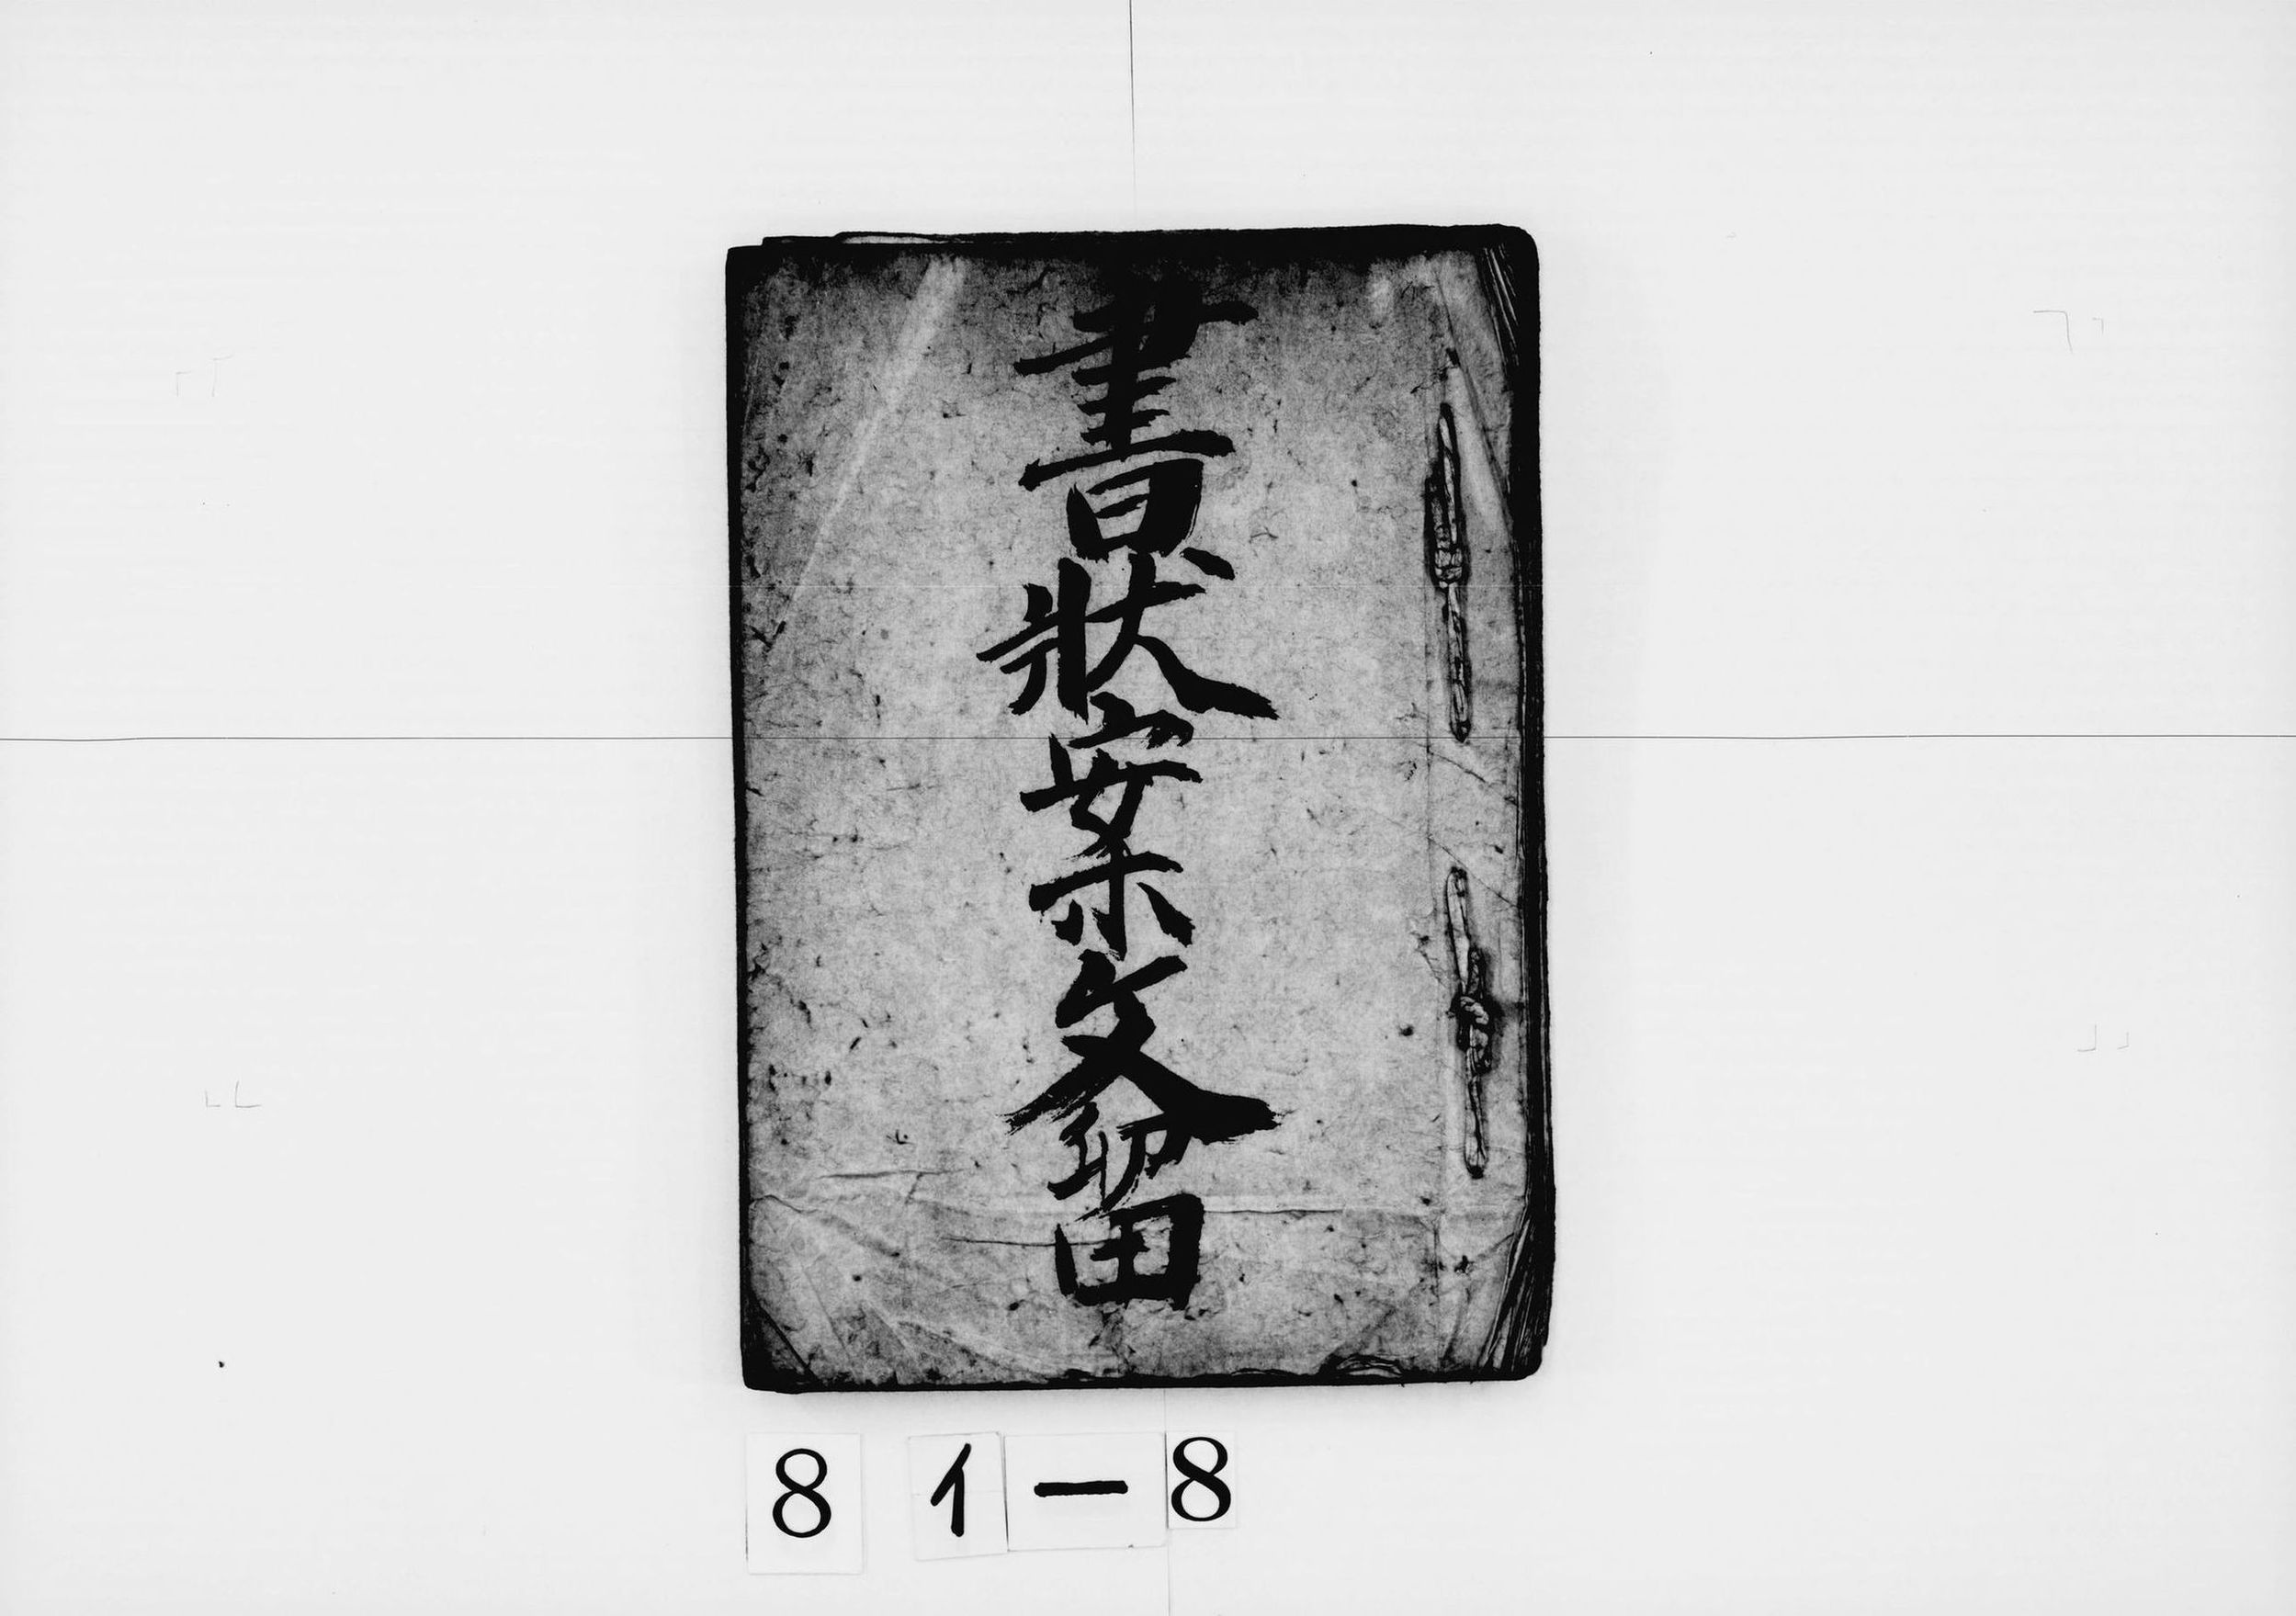 書狀案文留
8 イー8